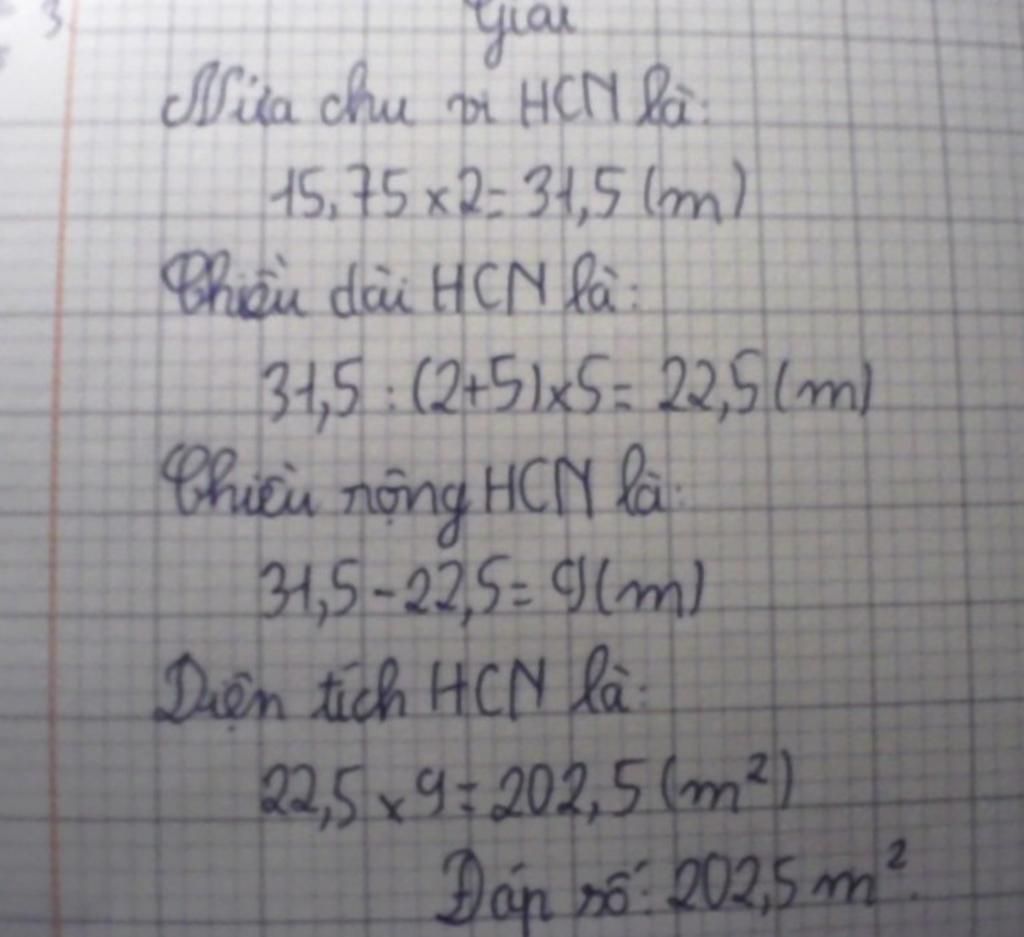 3
Giải
Nửa chu vi HCN là:
15,75 x 2 = 31,5 (m)
Chiều dài HCN là:
31,5 : (2+5) x 5 = 22,5 (m)
Chiều rộng HCN là:
31,5 - 22,5 = 9 (m)
Diện tích HCN là:
22,5 x 9 = 202,5 (m²)
Đáp số: 202,5 m².